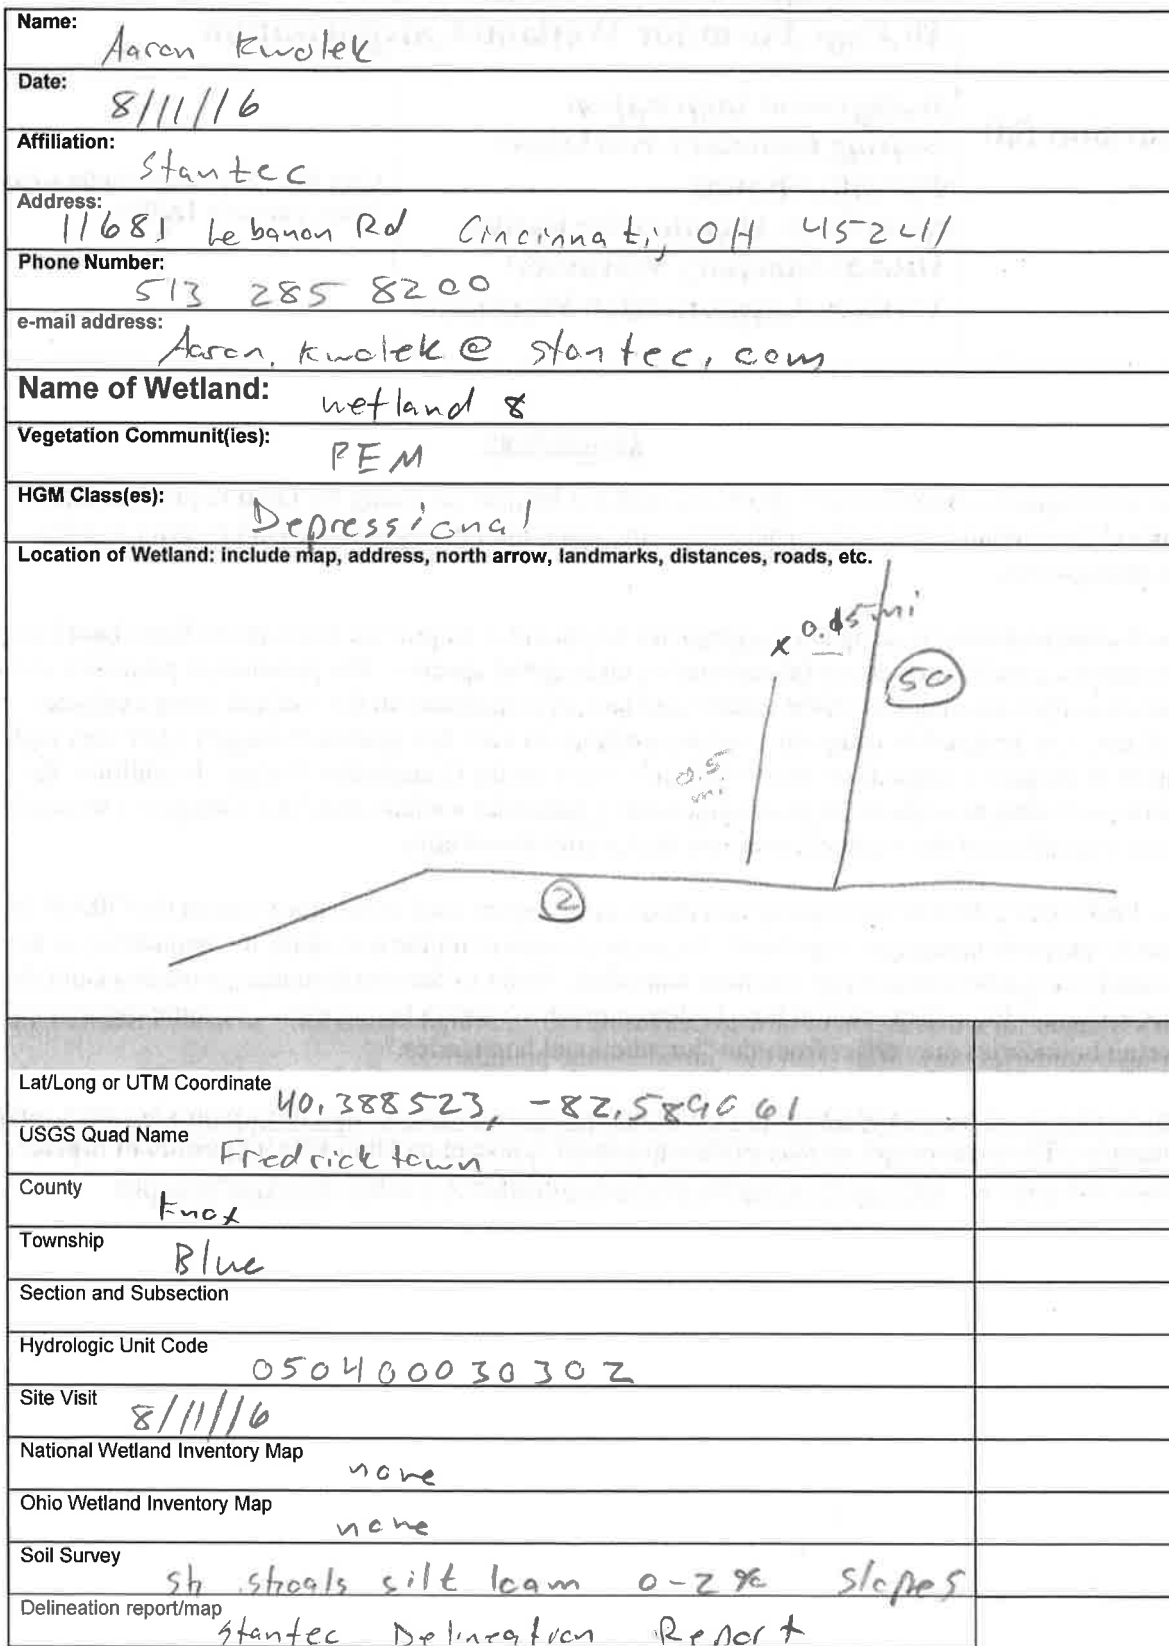 Name:
Aaron Kwolek
Date:
8/11/16
Affiliation:
Stantec
Address:
11681 Lebanon Rd Cincinnati, OH 45241
Phone Number:
513 285 8200
e-mail address:
Aaron.Kwolek@stantec.com
Name of Wetland:
wetland 8
Vegetation Communit(ies):
PEM
HGM Class(es):
Depressional
Location of Wetland: include map, address, north arrow, landmarks, distances, roads, etc.
x 0.15 mi
50
0.5
mi
2
Lat/Long or UTM Coordinate
40.388523, -82.589061
USGS Quad Name
Fredricktown
County
Knox
Township
Blue
Section and Subsection
Hydrologic Unit Code
050400030302
Site Visit
8/11/16
National Wetland Inventory Map
none
Ohio Wetland Inventory Map
none
Soil Survey
Sh shoals silt loam 0-2% slopes
Delineation report/map
Stantec Delineation Report